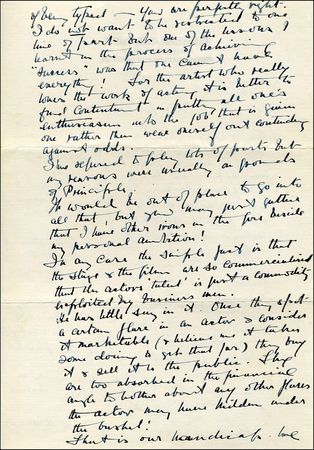 of being typed — You are perfectly right.
I do not want to be restricted to one
line of part. But one of the lessons I
learnt in the process of achieving
"success" was that one can't have
everything! For the artist who really
loves the work of acting it is better to
find contentment in putting all one's
enthusiasm into the job that is given
one rather than wear oneself out contending
against odds.
I've refused to play lots of parts but
my reasons were usually on grounds
of Principle
It would be out of place to go into
all that, but you may just gather
that I have other irons in the fire beside
my personal ambition!
In any case the simple fact is that
the stage & the films are so commercialised
that the actors 'talent' is just a commodity
exploited by business men.
He has little say in it. Once they spot
a certain flare in an actor & consider
it marketable (& believe me it takes
some doing to get that far) they buy
it & sell it to the public. They
are too absorbed in the financial
angle to bother about any other flares
the actor may have hidden under
the bushel!
That is our handicap. We